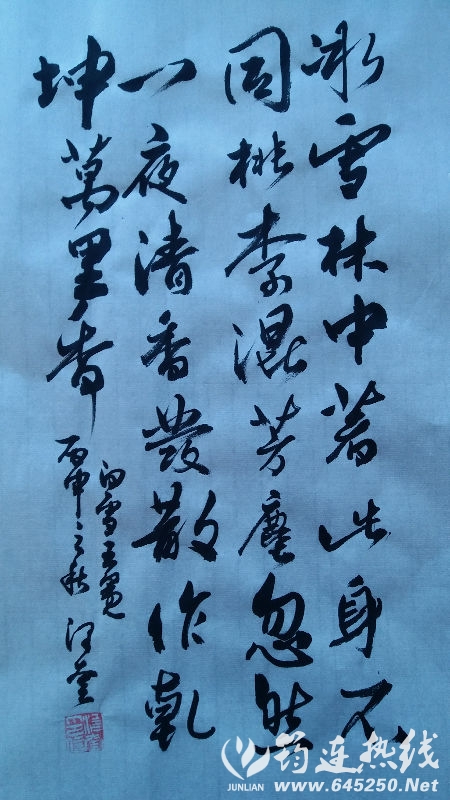 冰雪林中著此身不
同桃李混芳塵忽然
一夜清香發散作乾
坤萬里春
白雪王冕
丙申之秋
筠连热线
JUNLIAN
www.645250.Net